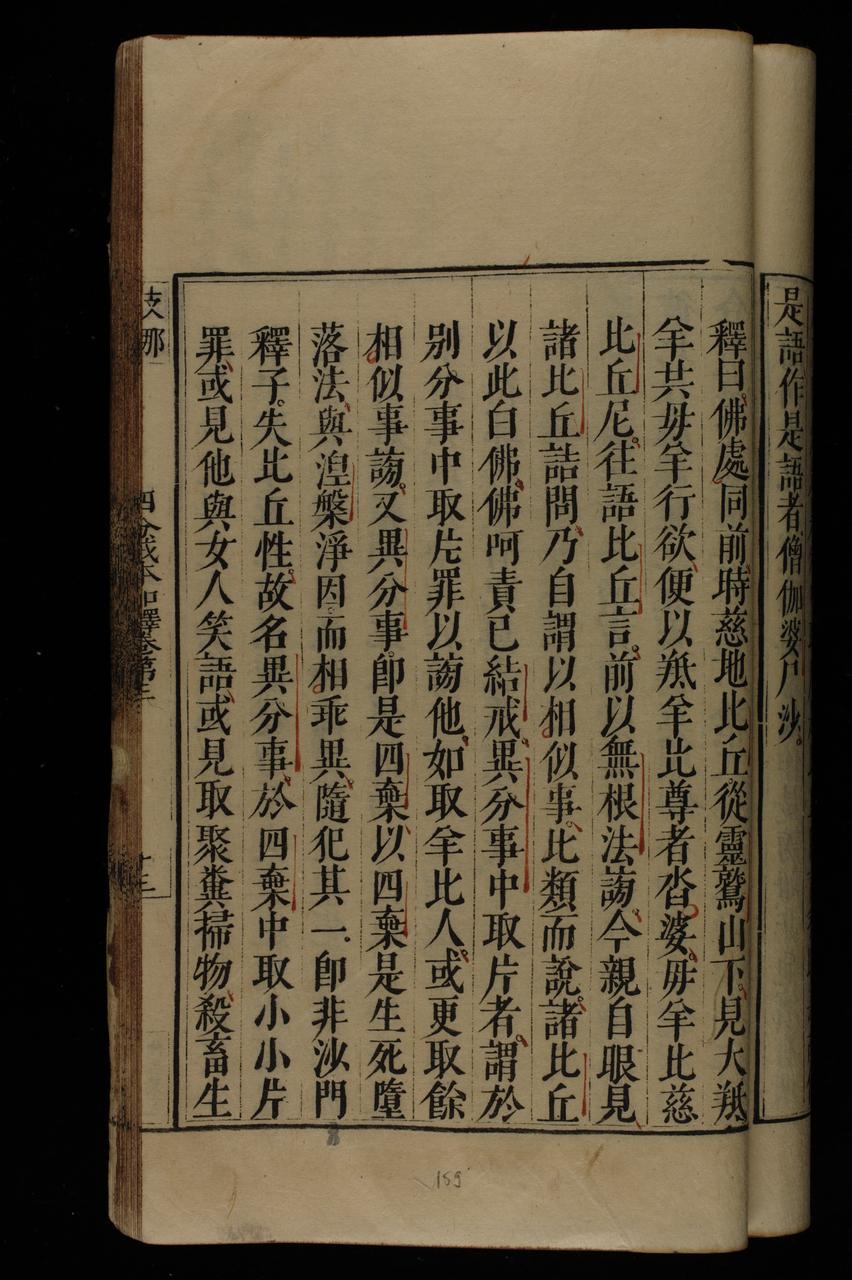 是語作是語者僧伽婆尸沙
釋曰佛處同前時慈地比丘從靈鷲山下見大羝
羊共母羊行欲便以羝羊比尊者沓婆母羊比慈
比丘尼往語比丘言前以無根法謗今親自眼見
諸比丘詰問乃自謂以相似事比類而說諸比丘
以此白佛佛呵責已結戒異分事中取片者謂於
別分事中取片罪以謗他如取羊比人或更取餘
相似事謗又異分事即是四棄以四棄是生死墮
落法與涅槃淨因而相乖異隨犯其一即非沙門
釋子失比丘性故名異分事於四棄中取小小片
罪或見他與女人笑語或見取聚糞掃物殺畜生
支那
四分戒本如釋卷第三
十三
159